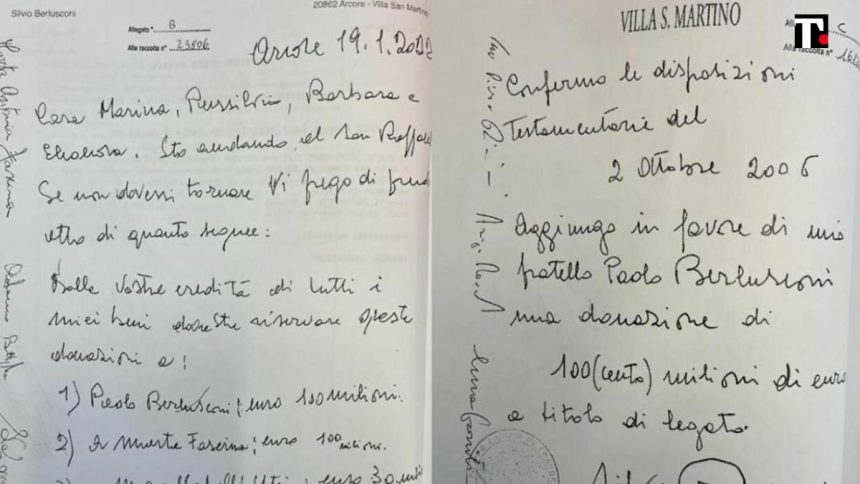 Silvio Berlusconi
20862 Arcore - Villa San Martino
Allegato " B
Alle raccolta n° 23806
Arcore 19.1.2022
Cara Marina, Piersilvio, Barbara e
Eleonora, Sto andando al San Raffaele
Se non dovessi tornare Vi prego di prend
atto di quanto segue:
Dalle vostre eredità di tutti i
miei beni dovreste riservare queste
donazioni a:
1) Paolo Berlusconi; euro 100 milioni.
2) a Marta Fascina; euro 100 milioni.
3) Marcello Dell'Utri; euro 30 mili
Marta Antonia Fascina
VILLA S. MARTINO
T.
C
Alla raccolta n°
Confermo le disposizioni
testamentarie del
2 Ottobre 2006
Aggiungo in favore di mio
fratello Paolo Berlusconi
una donazione di
100 (cento) milioni di euro
a titolo di legato.